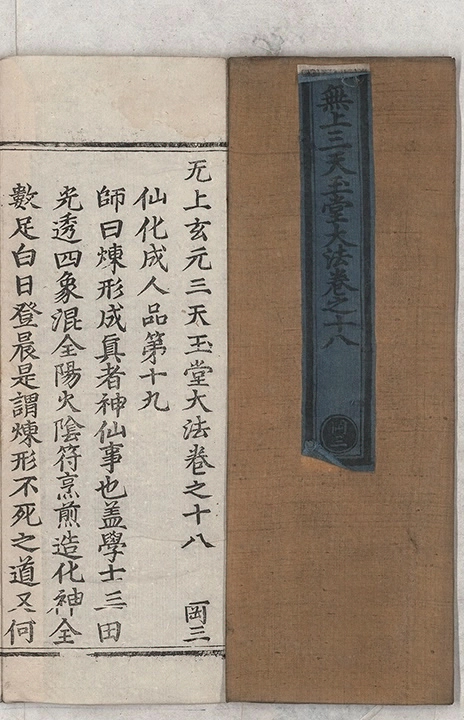 無上三天玉堂大法卷之十八
岡三
无上玄元三天玉堂大法卷之十八 岡三
仙化成人品第十九
師曰煉形成真者神仙事也盖學士三田
光透四象混全陽火陰符烹煎造化神全
數足白日登晨是謂煉形不死之道又何